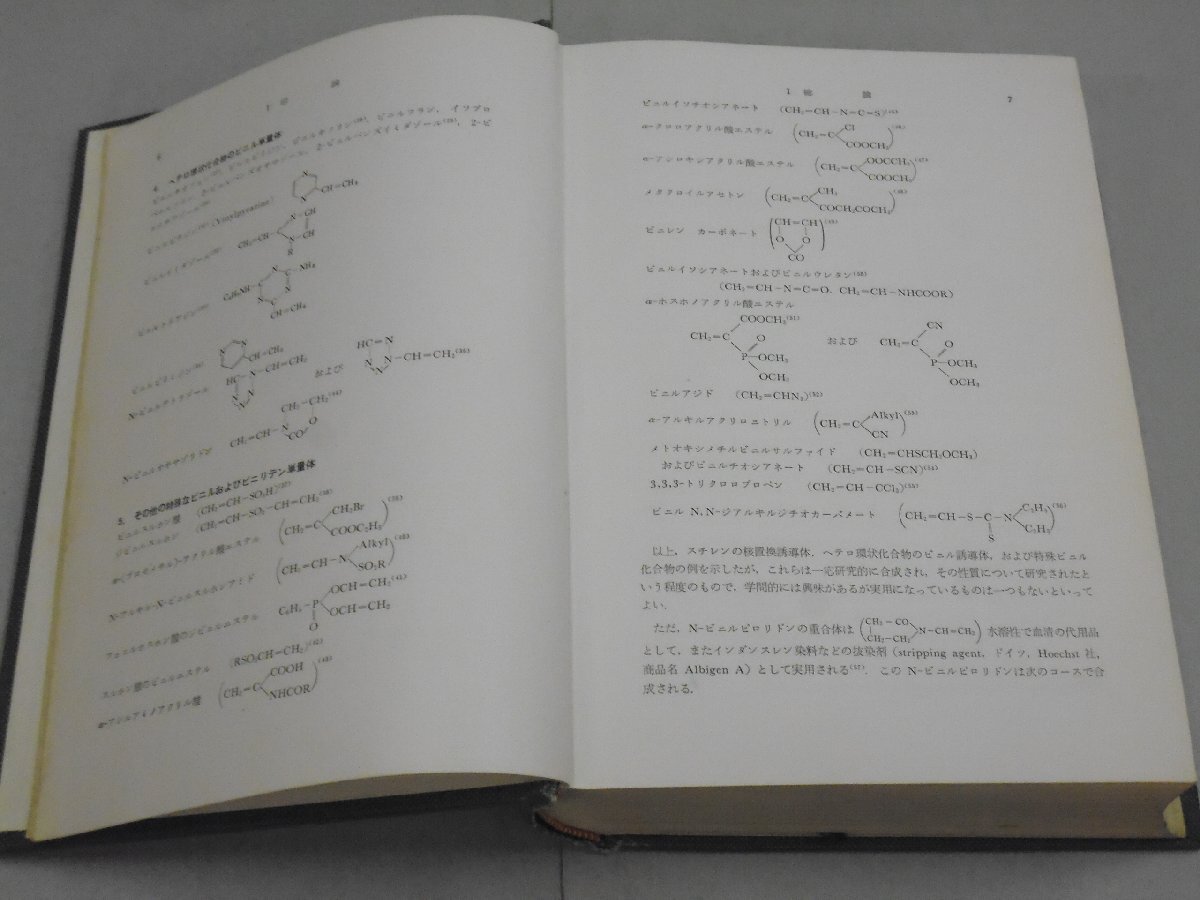 6
I 総 論
4. ヘテロ環状化合物のビニル単量体
(Vinylpyrazine)
N
CH=CH₂
CH₂=CH
N-CH
N-CH
R
C₆H₅NH
N
C-NH₂
CH=CH₂
CH=CH₂
N-ビニルテトラゾール
HC-N-CH=CH₂
および
HC=N
N-CH=CH₂⁽³⁶⁾
N-ビニルオキサゾリドン
CH₂=CH-N
CH₂-CH₂⁽⁴⁴⁾
CO
O
5. その他の特殊なビニルおよびビニリデン単量体
ビニルスルホン酸 (CH₂=CH-SO₃H)⁽³⁷⁾
ジビニルスルホン (CH₂=CH-SO₂-CH=CH₂⁽³⁸⁾
α-(ブロモメチル)-アクリル酸エステル (CH₂=C CH₂Br COOC₂H₅)⁽³⁹⁾
N-アルキル-N-ビニルスルホンアミド (CH₂=CH-N Alkyl SO₂R)⁽⁴⁰⁾
フェニルホスホン酸のジビニルエステル C₆H₅-P OCH=CH₂⁽⁴¹⁾ OCH=CH₂
O
スルホン酸のビニルエステル (RSO₃CH=CH₂)⁽⁴²⁾
α-アシルアミノアクリル酸 (CH₂=C COOH NHCOR)⁽⁴³⁾
I 総 論
7
ビニルイソチオシアネート (CH₂=CH-N=C=S)⁽⁴⁵⁾
α-クロロアクリル酸エステル (CH₂=C Cl COOCH₃)⁽⁴⁶⁾
α-アシロキシアクリル酸エステル (CH₂=C OOCCH₃ COOCH₃)⁽⁴⁷⁾
メタクロイルアセトン (CH₂=C CH₃ COCH₂COCH₃)⁽⁴⁸⁾
ビニレン カーボネート (CH=CH O O CO)⁽⁴⁹⁾
ビニルイソシアネートおよびビニルウレタン⁽⁵⁰⁾
(CH₂=CH-N=C=O, CH₂=CH-NHCOOR)
α-ホスホノアクリル酸エステル
COOCH₃⁽⁵¹⁾
CH₂=C
P-OCH₃
O
OCH₃
および
CN
CH₂=C
P-OCH₃
O
OCH₃
ビニルアジド (CH₂=CHN₃)⁽⁵²⁾
α-アルキルアクリロニトリル (CH₂=C Alkyl CN)⁽⁵³⁾
メトオキシメチルビニルサルファイド (CH₂=CHSCH₂OCH₃)
およびビニルチオシアネート (CH₂=CH-SCN)⁽⁵⁴⁾
3,3,3-トリクロロプロペン (CH₂=CH-CCl₃)⁽⁵⁵⁾
ビニル N,N-ジアルキルジチオカーバメート (CH₂=CH-S-C-N C₂H₅ C₂H₅)⁽⁵⁶⁾
S
以上，スチレンの核置換誘導体，ヘテロ環状化合物のビニル誘導体，および特殊ビニル
化合物の例を示したが，これらは一応研究的に合成され，その性質について研究されたと
いう程度のもので，学問的には興味があるが実用になっているものは一つもないといって
よい．
ただ，N-ビニルピロリドンの重合体は (CH₂-CO CH₂-CH₂ N-CH=CH₂) 水溶性で血清の代用品
として，またインダンスレン染料などの抜染剤 (stripping agent, ドイツ，Hoechst 社，
商品名 Albigen A) として実用される⁽⁵⁷⁾．この N-ビニルピロリドンは次のコースで合
成される．